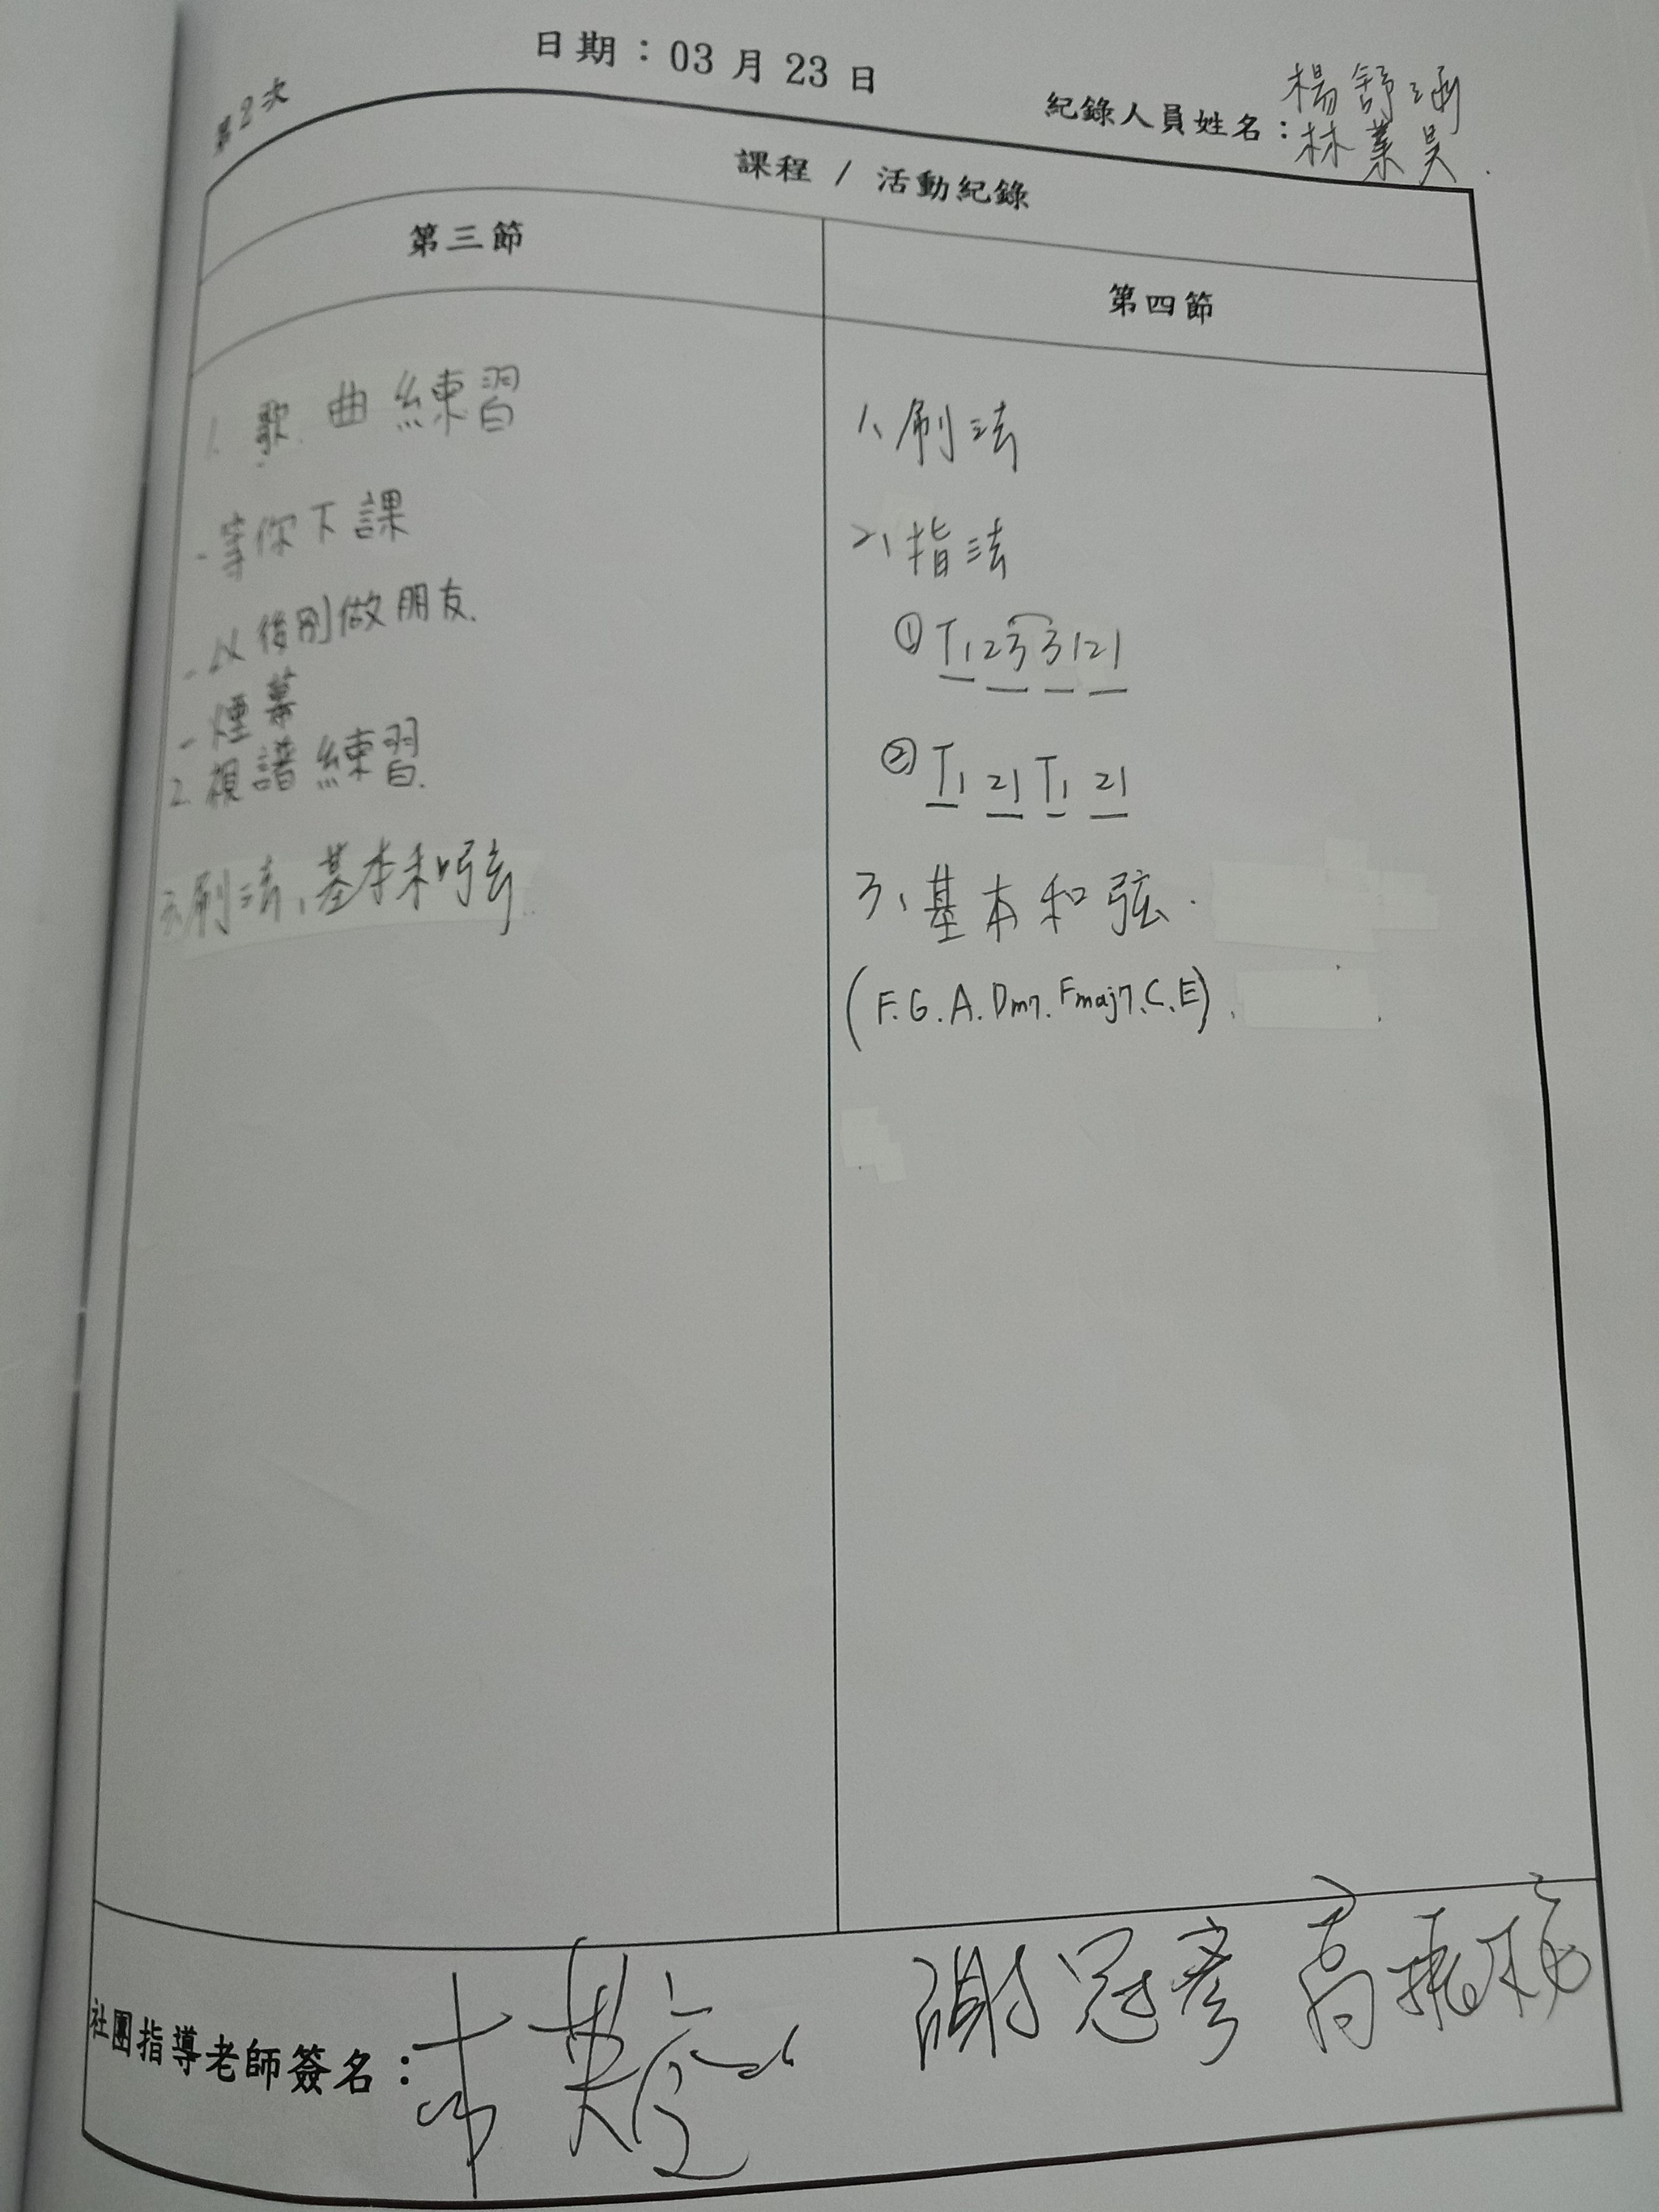 日期：03月23日
第2次
紀錄人員姓名：楊舒涵
林業昊.
課程 / 活動紀錄
第三節
1. 歌曲練習
-等你下課
-以後別做朋友.
-煙幕
2.視譜練習.
3、刷法、基本和弦
第四節
1、刷法
2、指法
① T1 23 3 1 21
② T1 21 T1 21
3、基本和弦.
(F.G.A.Dm7.Fmaj7.C.E)
社團指導老師簽名：
謝冠彥